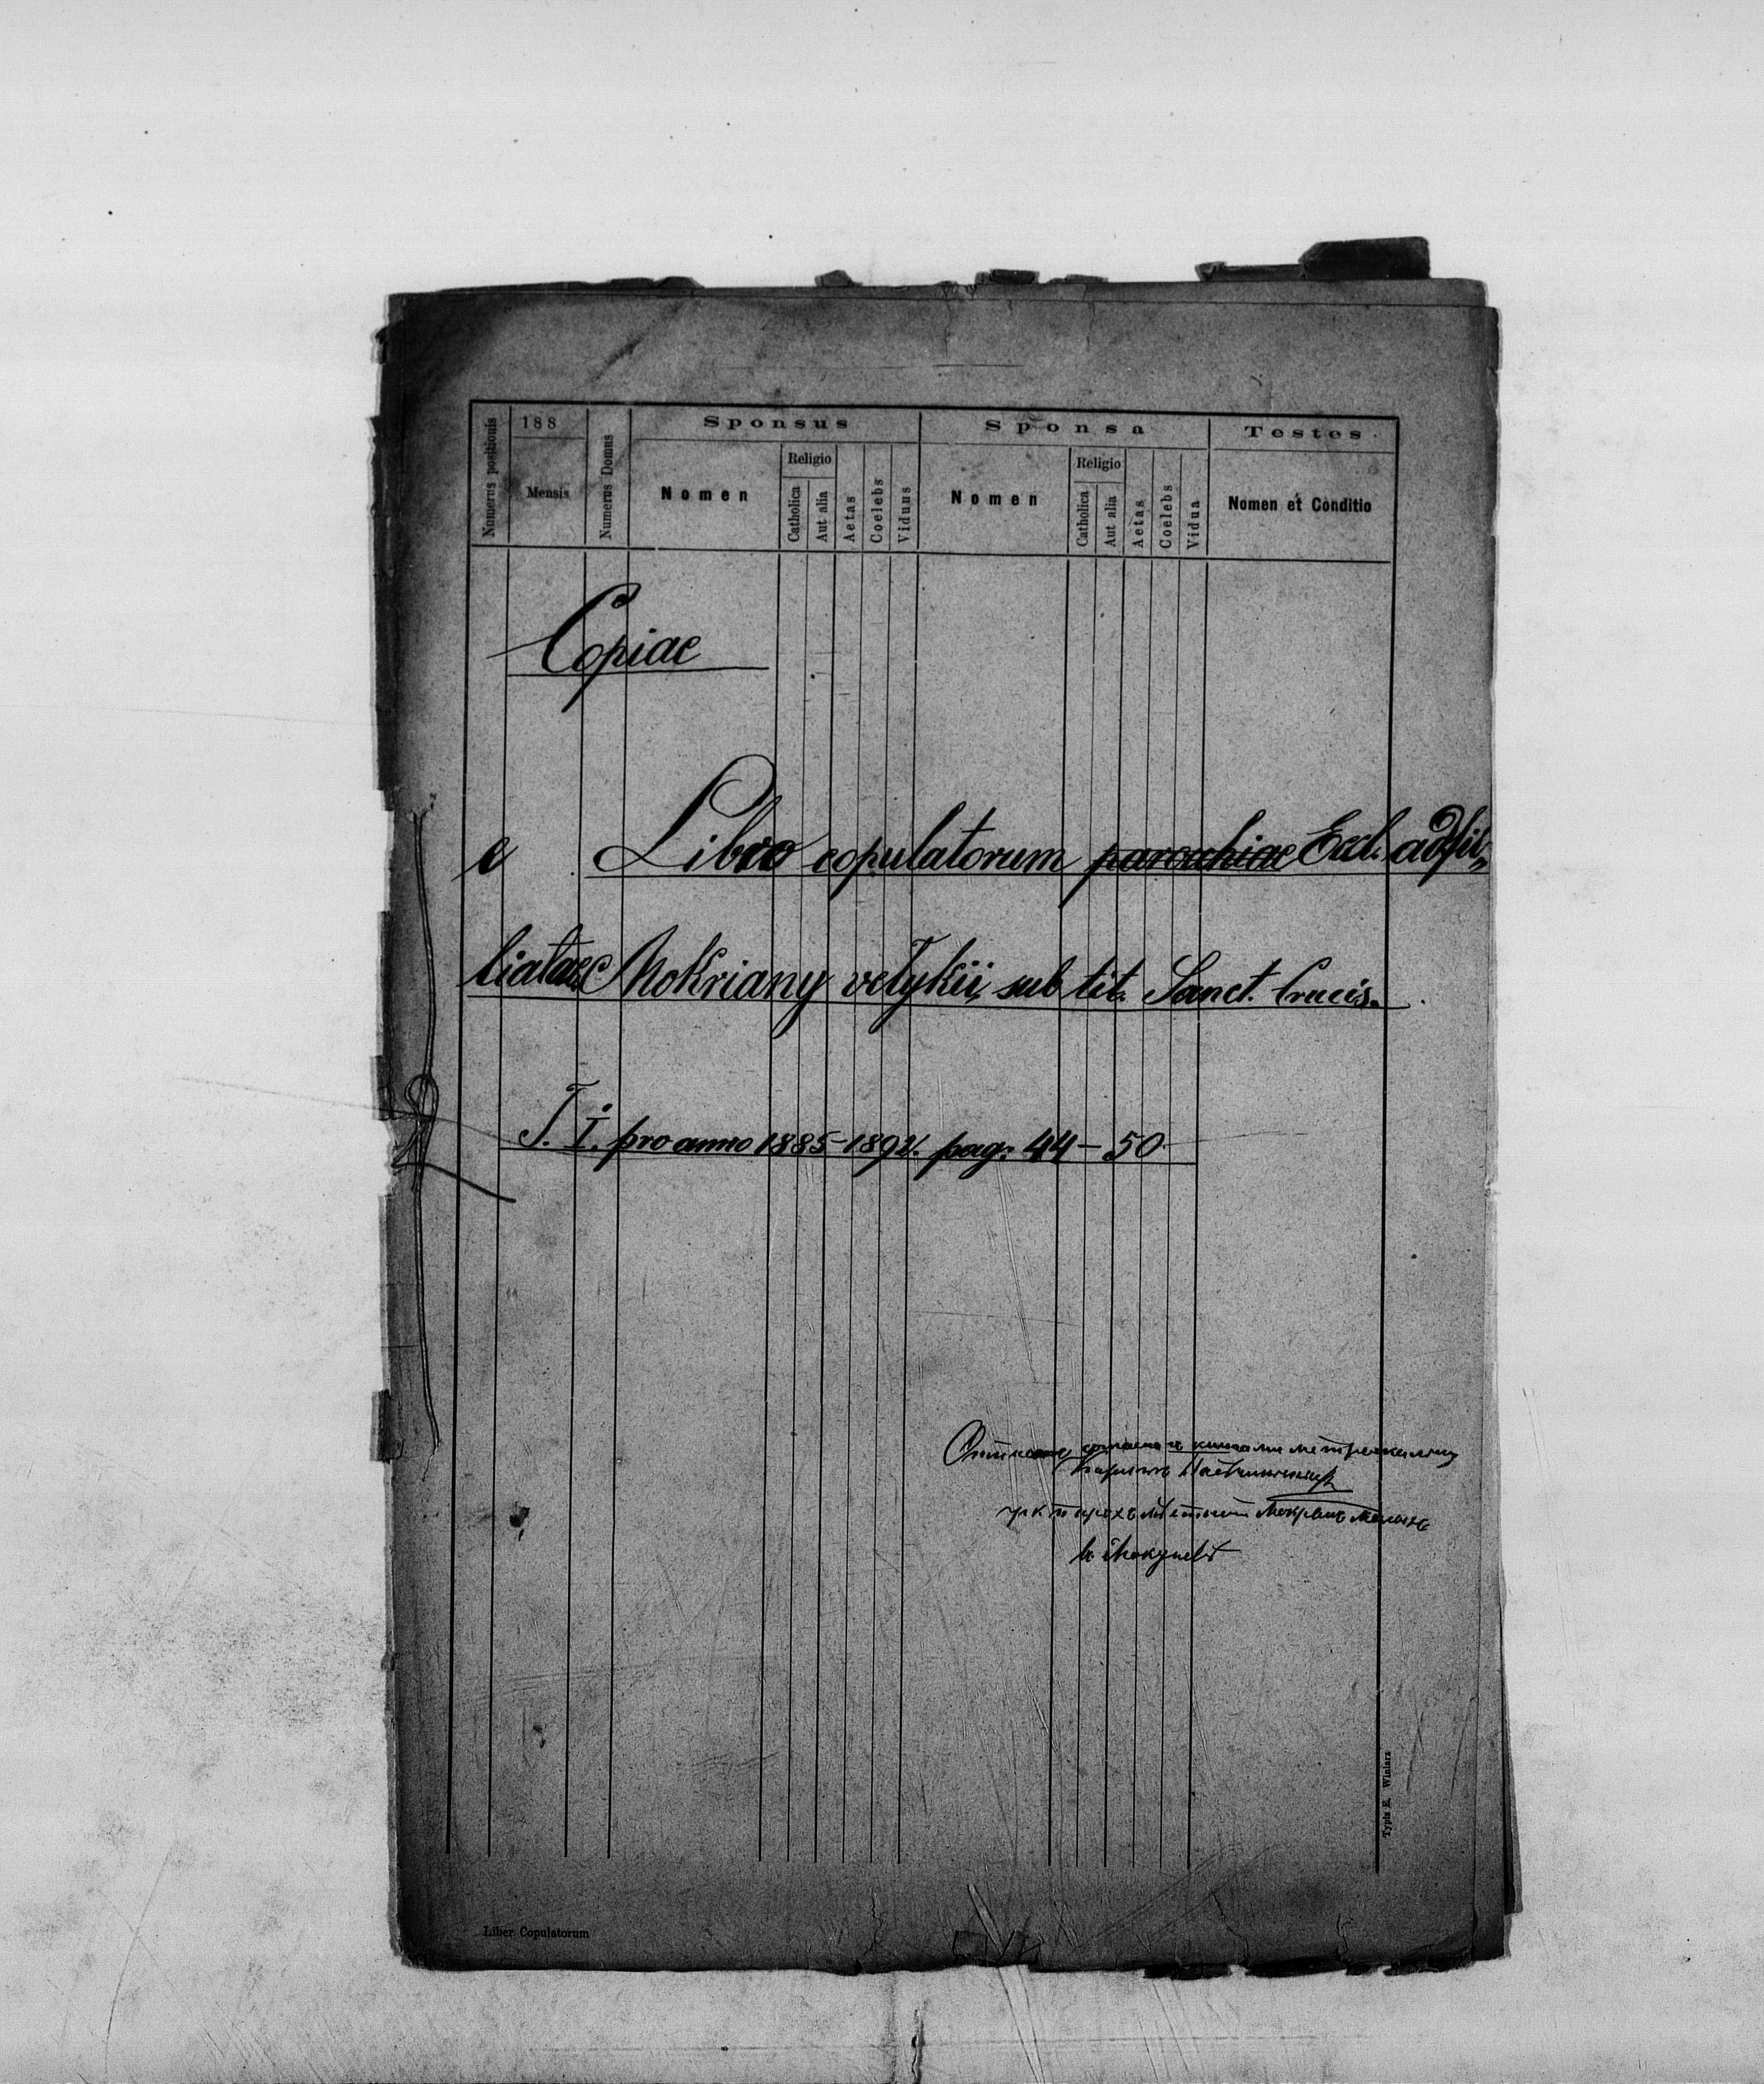 Numerus positionis 188 Mensis Numerus Domus Sponsus Sponsa Testes
Nomen Religio Catholica Aut alia Aetas Coelebs Viduus Nomen Religio Catholica Aut alia Aetas Coelebs Vidua Nomen et Conditio
Copiae
e Libro copulatorum parochiae Eccl. adfil„
liatae Mokriany velykii sub tit. Sanct. Crucis.
T. I. pro anno 1885-1892. pag. 44-50
Typis E. Winiarz
Liber Copulatorum